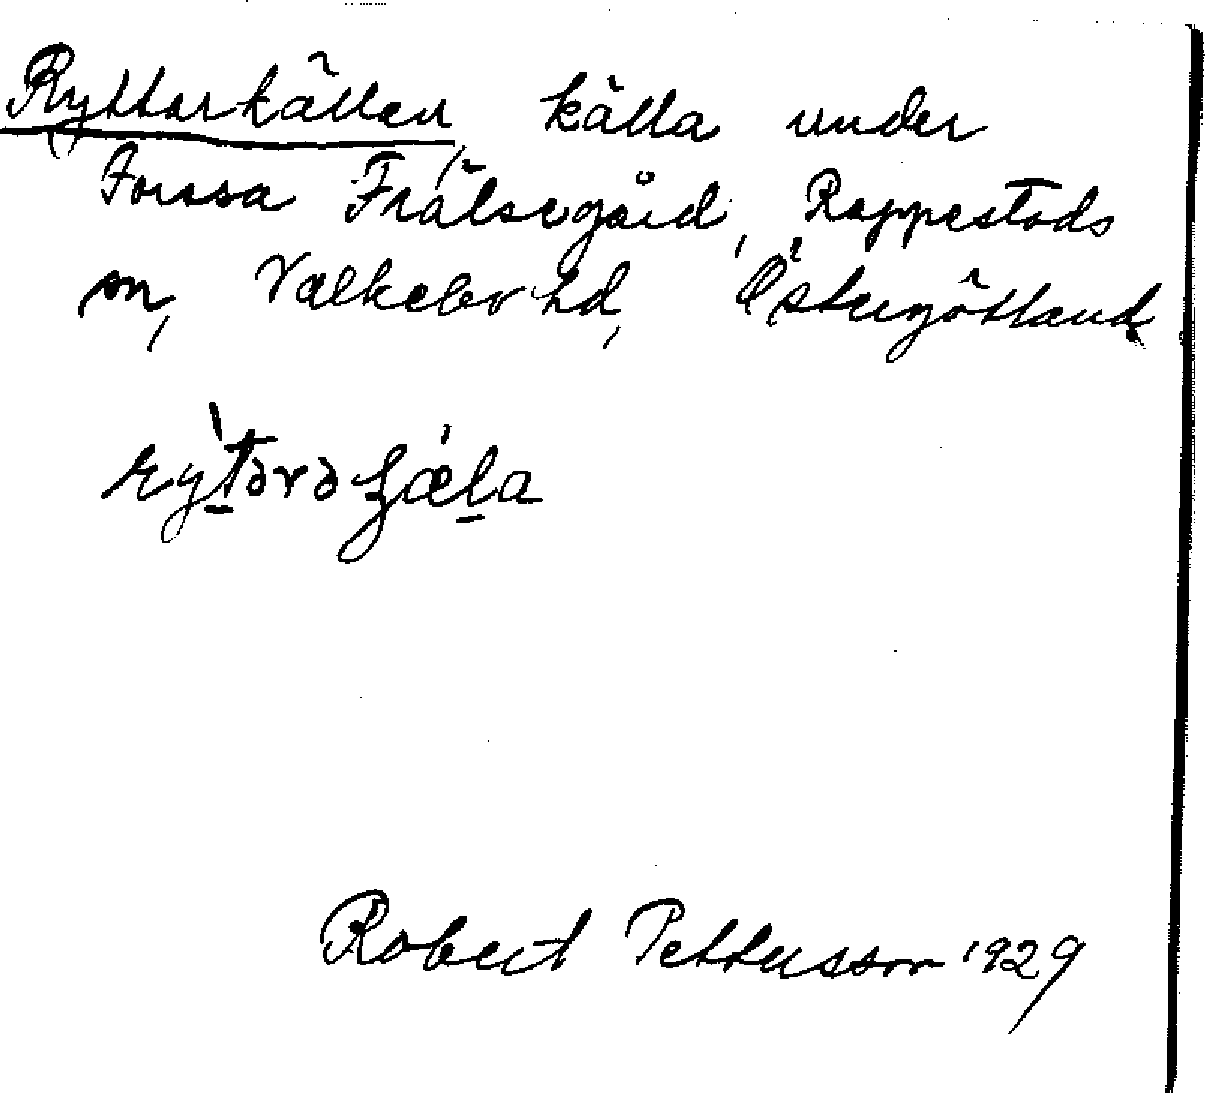 Ryttarkällan, källa under
Forssa Frälsegård, Rappestads
sn, Valkebo hd, Östergötland.
Robert Pettersson 1929